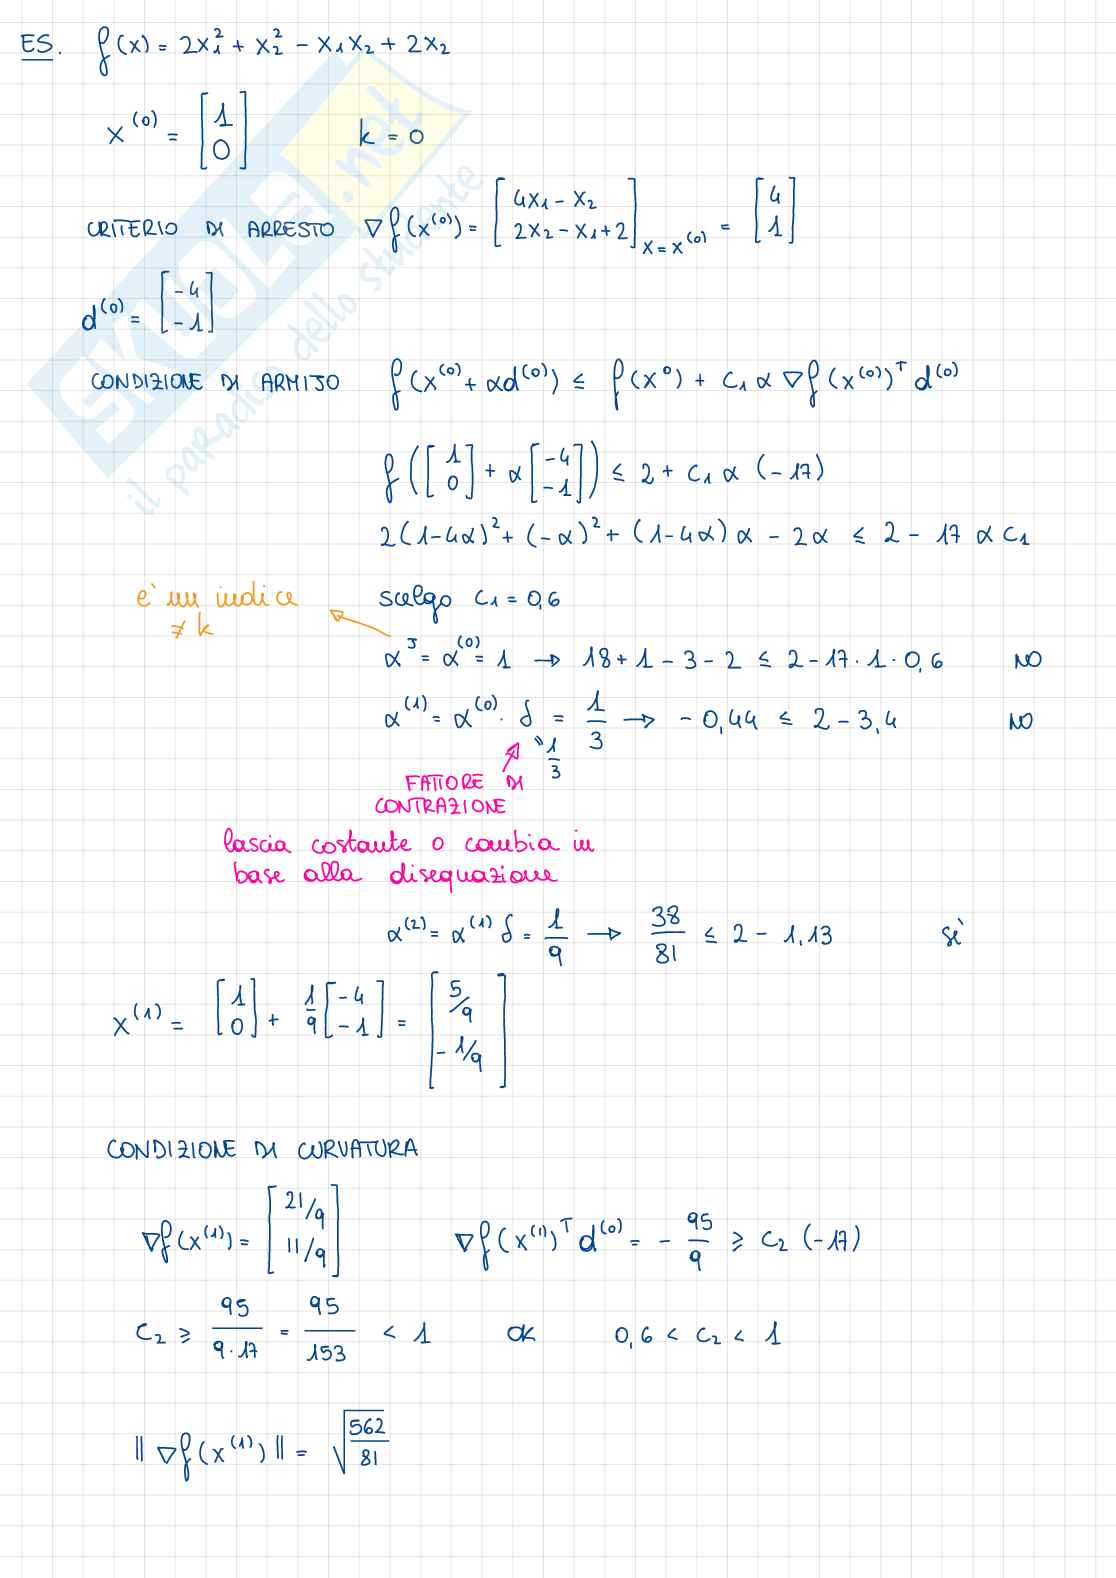 ES. f(x) = 2x₁² + x₂² - x₁x₂ + 2x₂
x⁽⁰⁾ = [1 0] k = 0
CRITERIO DI ARRESTO ∇f(x⁽⁰⁾) = [4x₁ - x₂ 2x₂ - x₁ + 2] x = x⁽⁰⁾ = [4 1]
d⁽⁰⁾ = [-4 -1]
CONDIZIONE DI ARMIJO f(x⁽⁰⁾ + αd⁽⁰⁾) ≤ f(x⁰) + c₁ α ∇f(x⁽⁰⁾)ᵀ d⁽⁰⁾
f([1 0] + α[-4 -1]) ≤ 2 + c₁ α (-17)
2(1-4α)² + (-α)² + (1-4α)α - 2α ≤ 2 - 17 α c₁
è un indice ≠ k
scelgo c₁ = 0,6
αᴶ = α⁽⁰⁾ = 1 → 18 + 1 - 3 - 2 ≤ 2 - 17 · 1 · 0,6 NO
α⁽¹⁾ = α⁽⁰⁾ · δ = 1/3 → -0,44 ≤ 2 - 3,4 NO
" 1/3
FATTORE DI
CONTRAZIONE
lascia costante o cambia in
base alla disequazione
α⁽²⁾ = α⁽¹⁾ δ = 1/9 → 38/81 ≤ 2 - 1,13 sì
x⁽¹⁾ = [1 0] + 1/9 [-4 -1] = [5/9 -1/9]
CONDIZIONE DI CURVATURA
∇f(x⁽¹⁾) = [21/9 11/9] ∇f(x⁽¹⁾)ᵀ d⁽⁰⁾ = - 95/9 ≥ c₂ (-17)
c₂ ≥ 95/9·17 = 95/153 < 1 OK 0,6 < c₂ < 1
‖∇f(x⁽¹⁾)‖ = √562/81
SKUOLA.net
il paradiso dello studente